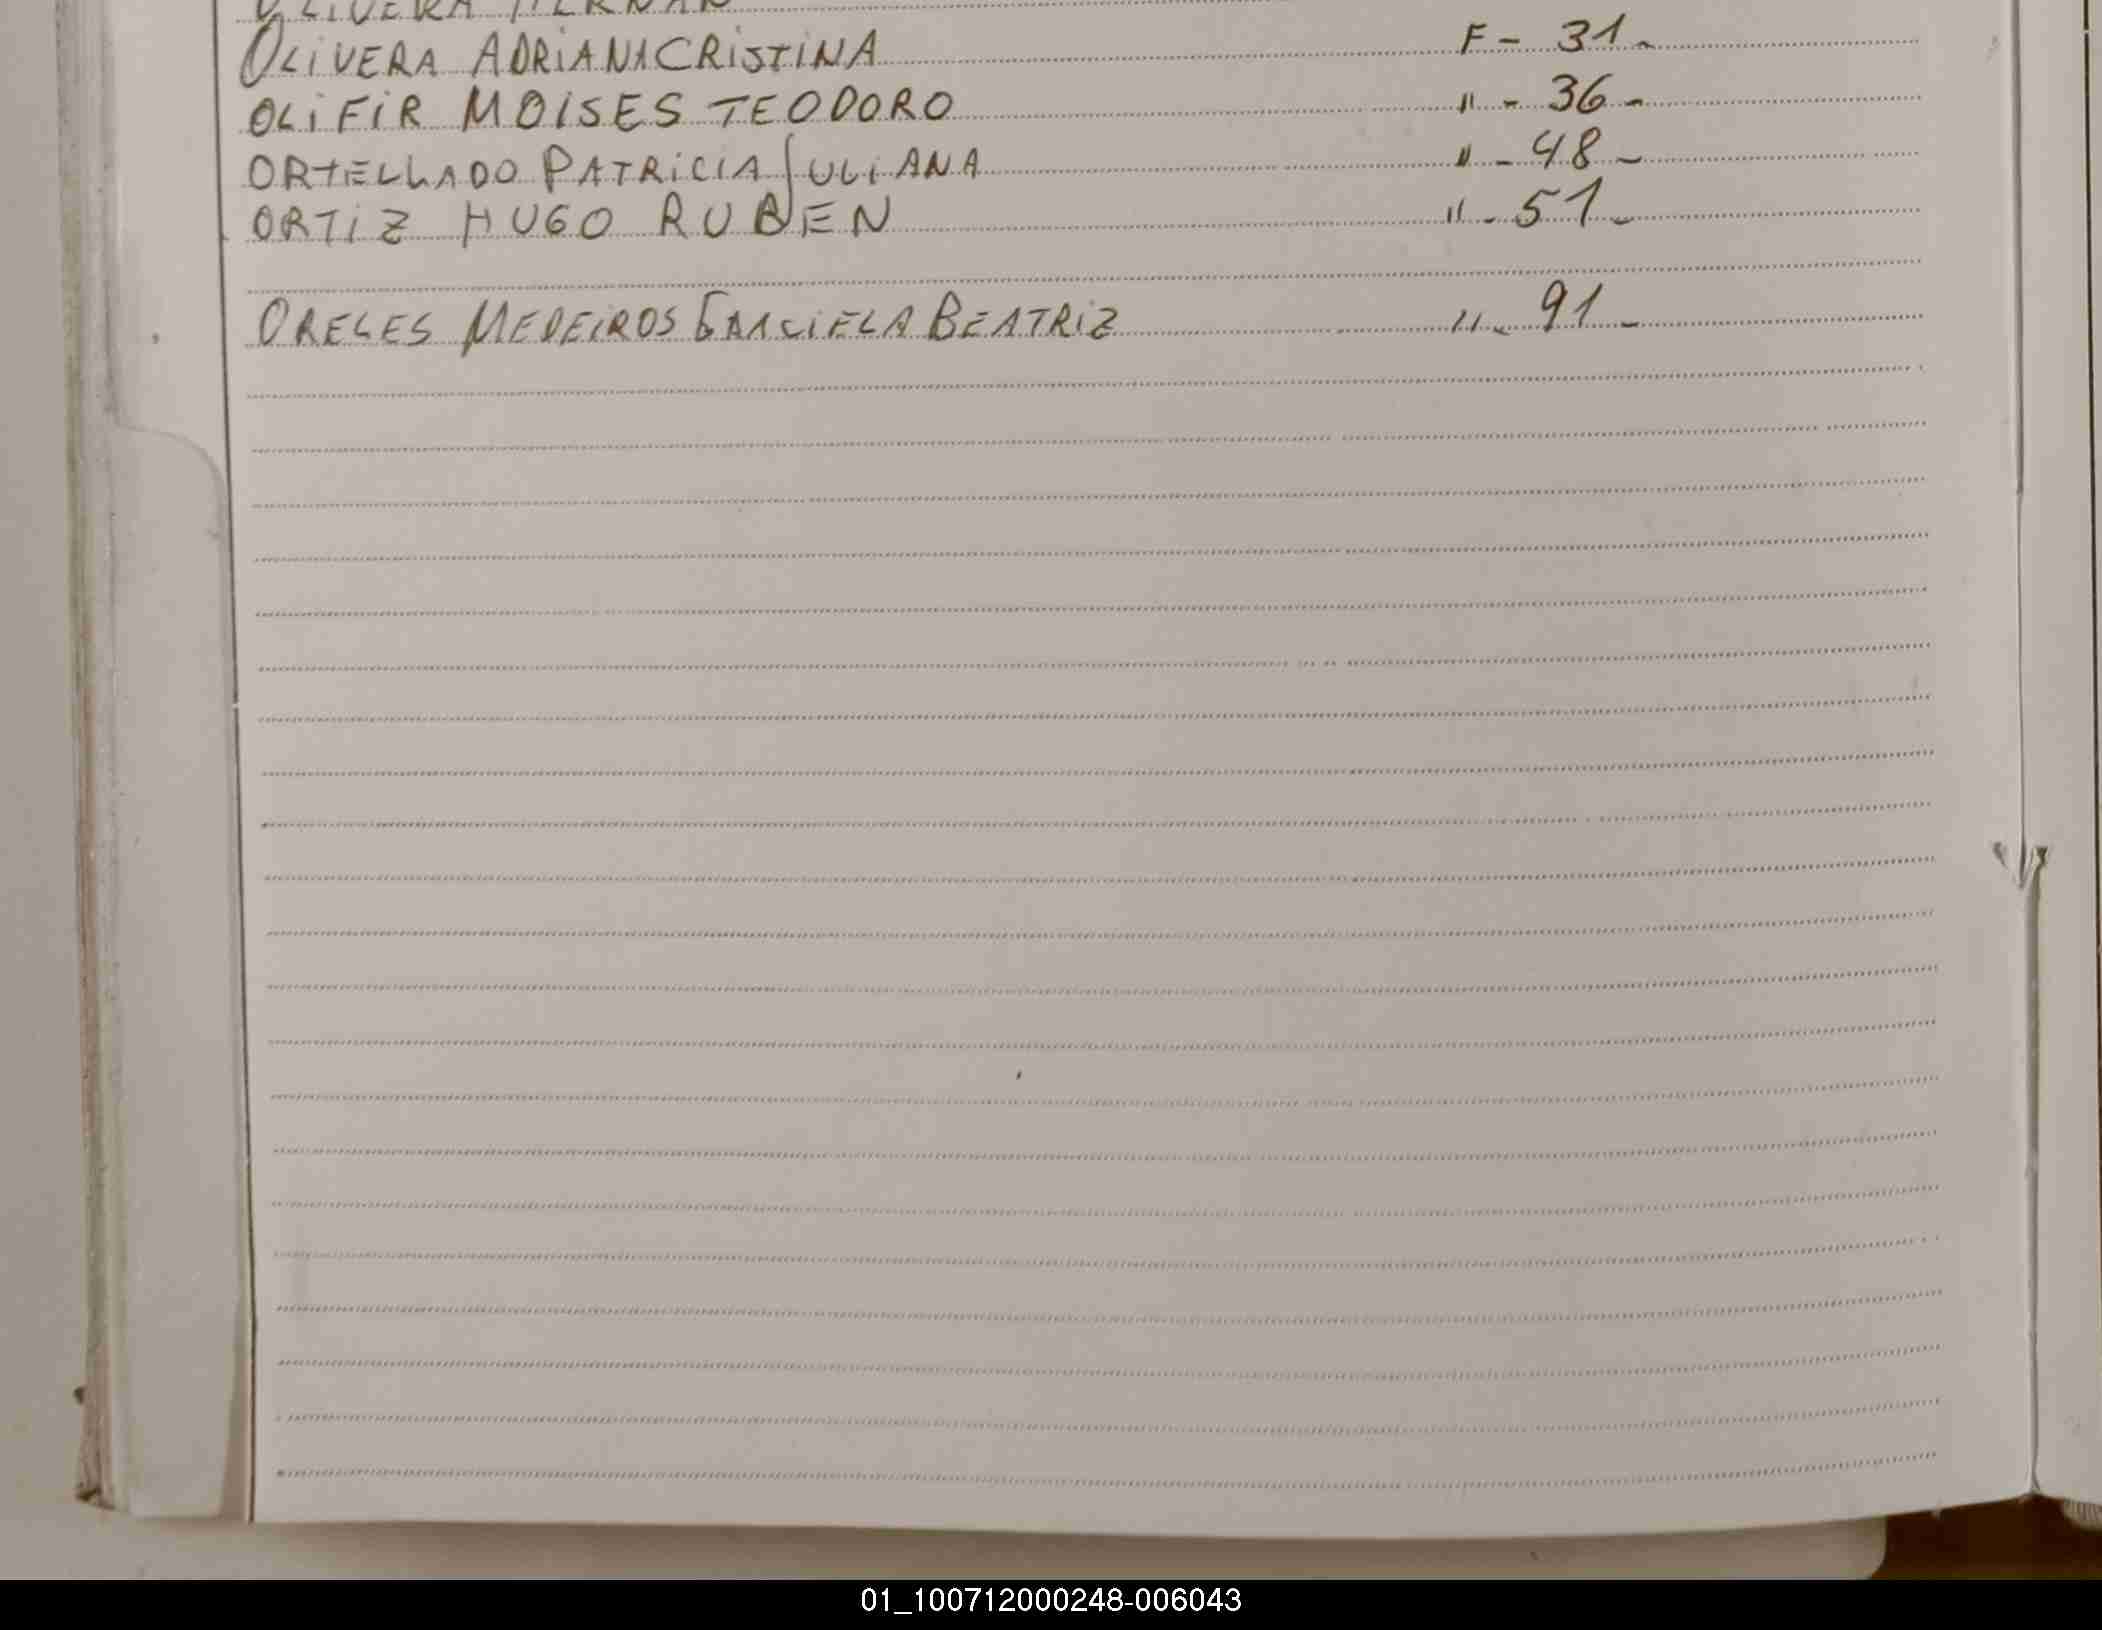 OLIVERA HERNAN
OLIVERA ADRIANA CRISTINA F - 31 -
OLIFIR MOISES TEODORO " - 36 -
ORTELLADO PATRICIA JULIANA " - 48 -
ORTIZ HUGO RUBEN " - 51 -
ORELES MEDEIROS GRACIELA BEATRIZ " - 91 -
01_100712000248-006043